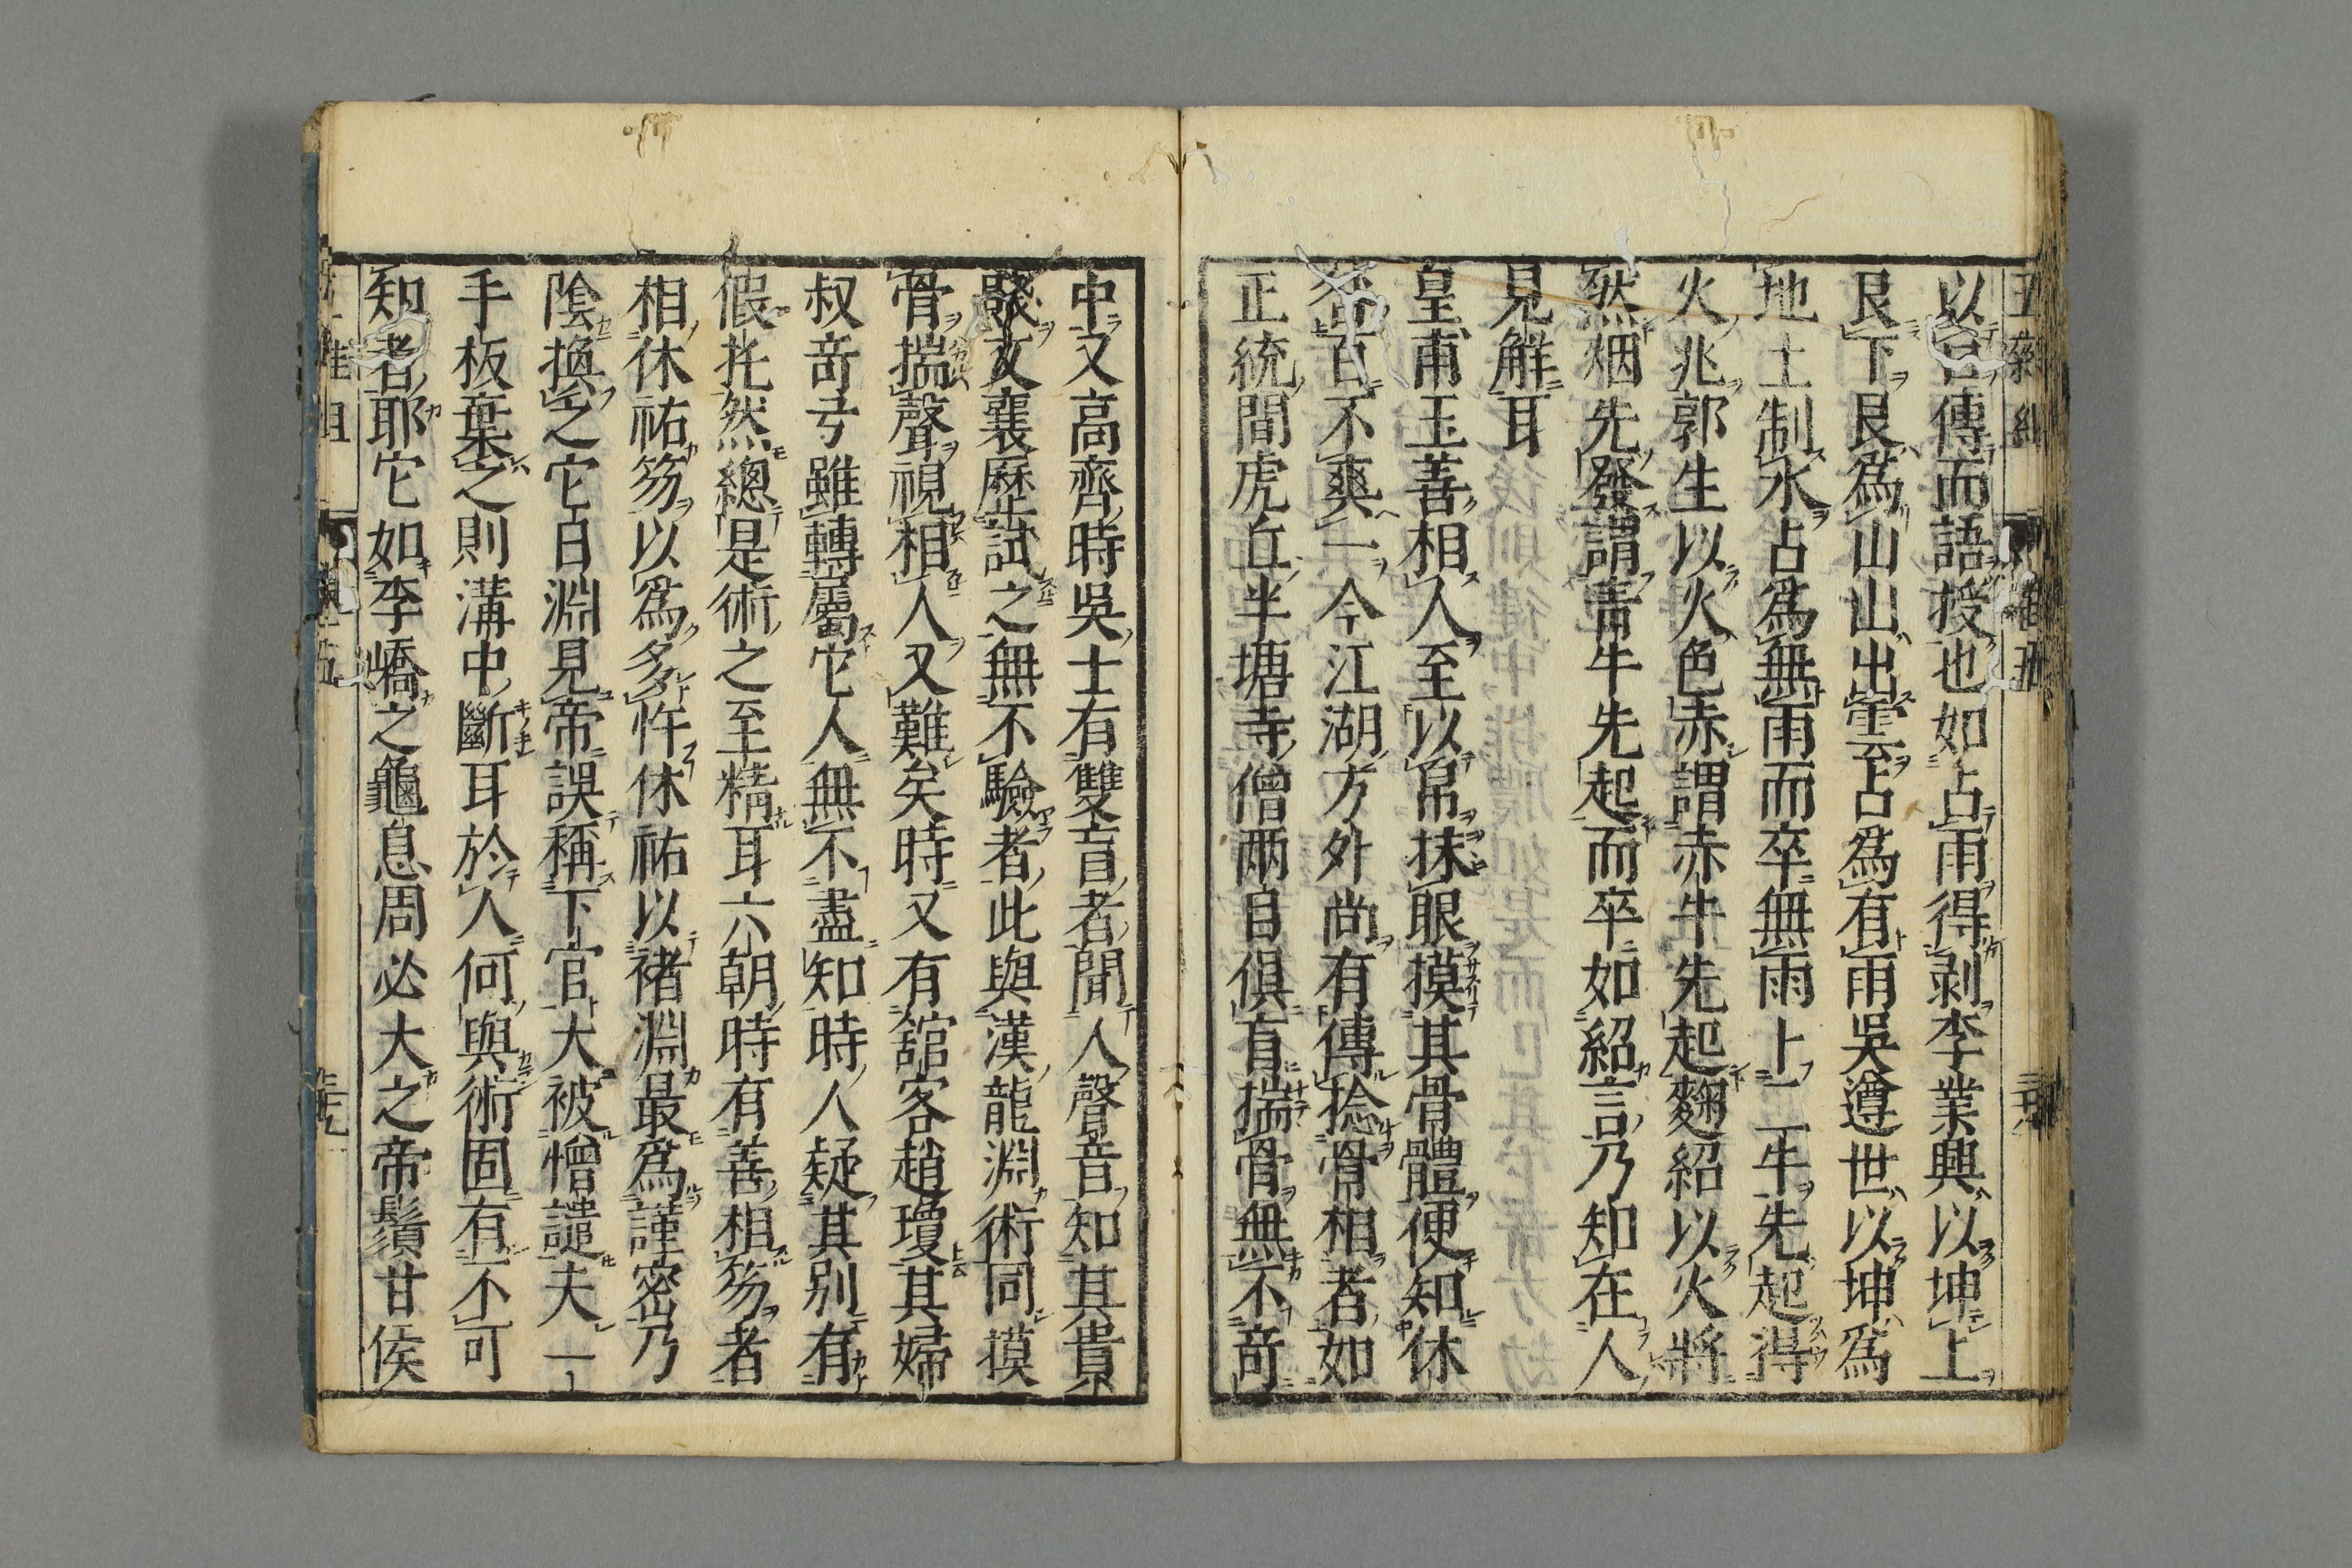 以言傳而語授也如占雨得剥李業興以坤上
艮下艮爲山山出雲占爲有雨吳遵世以坤爲
地土制水占爲無雨而卒無雨上二牛先起得
火兆郭生以火色赤謂赤牛先起麴紹以火將
然烟先發謂青牛先起而卒如紹言乃知在人
見解耳
皇甫玉善相人至以帛抹眼摸其骨體便知休
咎百不爽一今江湖方外尚有傳捻骨相者如
正統間虎丘半塘寺僧兩目俱盲揣骨無不奇
中又高齊時吳士有雙盲者聞人聲音知其貴
賤文襄歷試之無不驗者此與漢龍淵術同摸
骨揣聲視相人又難矣時又有舘客趙瓊其婦
叔奇弓雖轉屬它人無不盡知時人疑其別有
假托然總是術之至精耳六朝時有善相笏者
相休祐笏以爲多忤休祐以褚淵最爲謹密乃
陰換之它日淵見帝誤稱下官大被憎譴夫一
手板棄之則溝中斷耳於人何與術固有不可
知者耶它如李嶠之龜息周必大之帝鬚甘侯